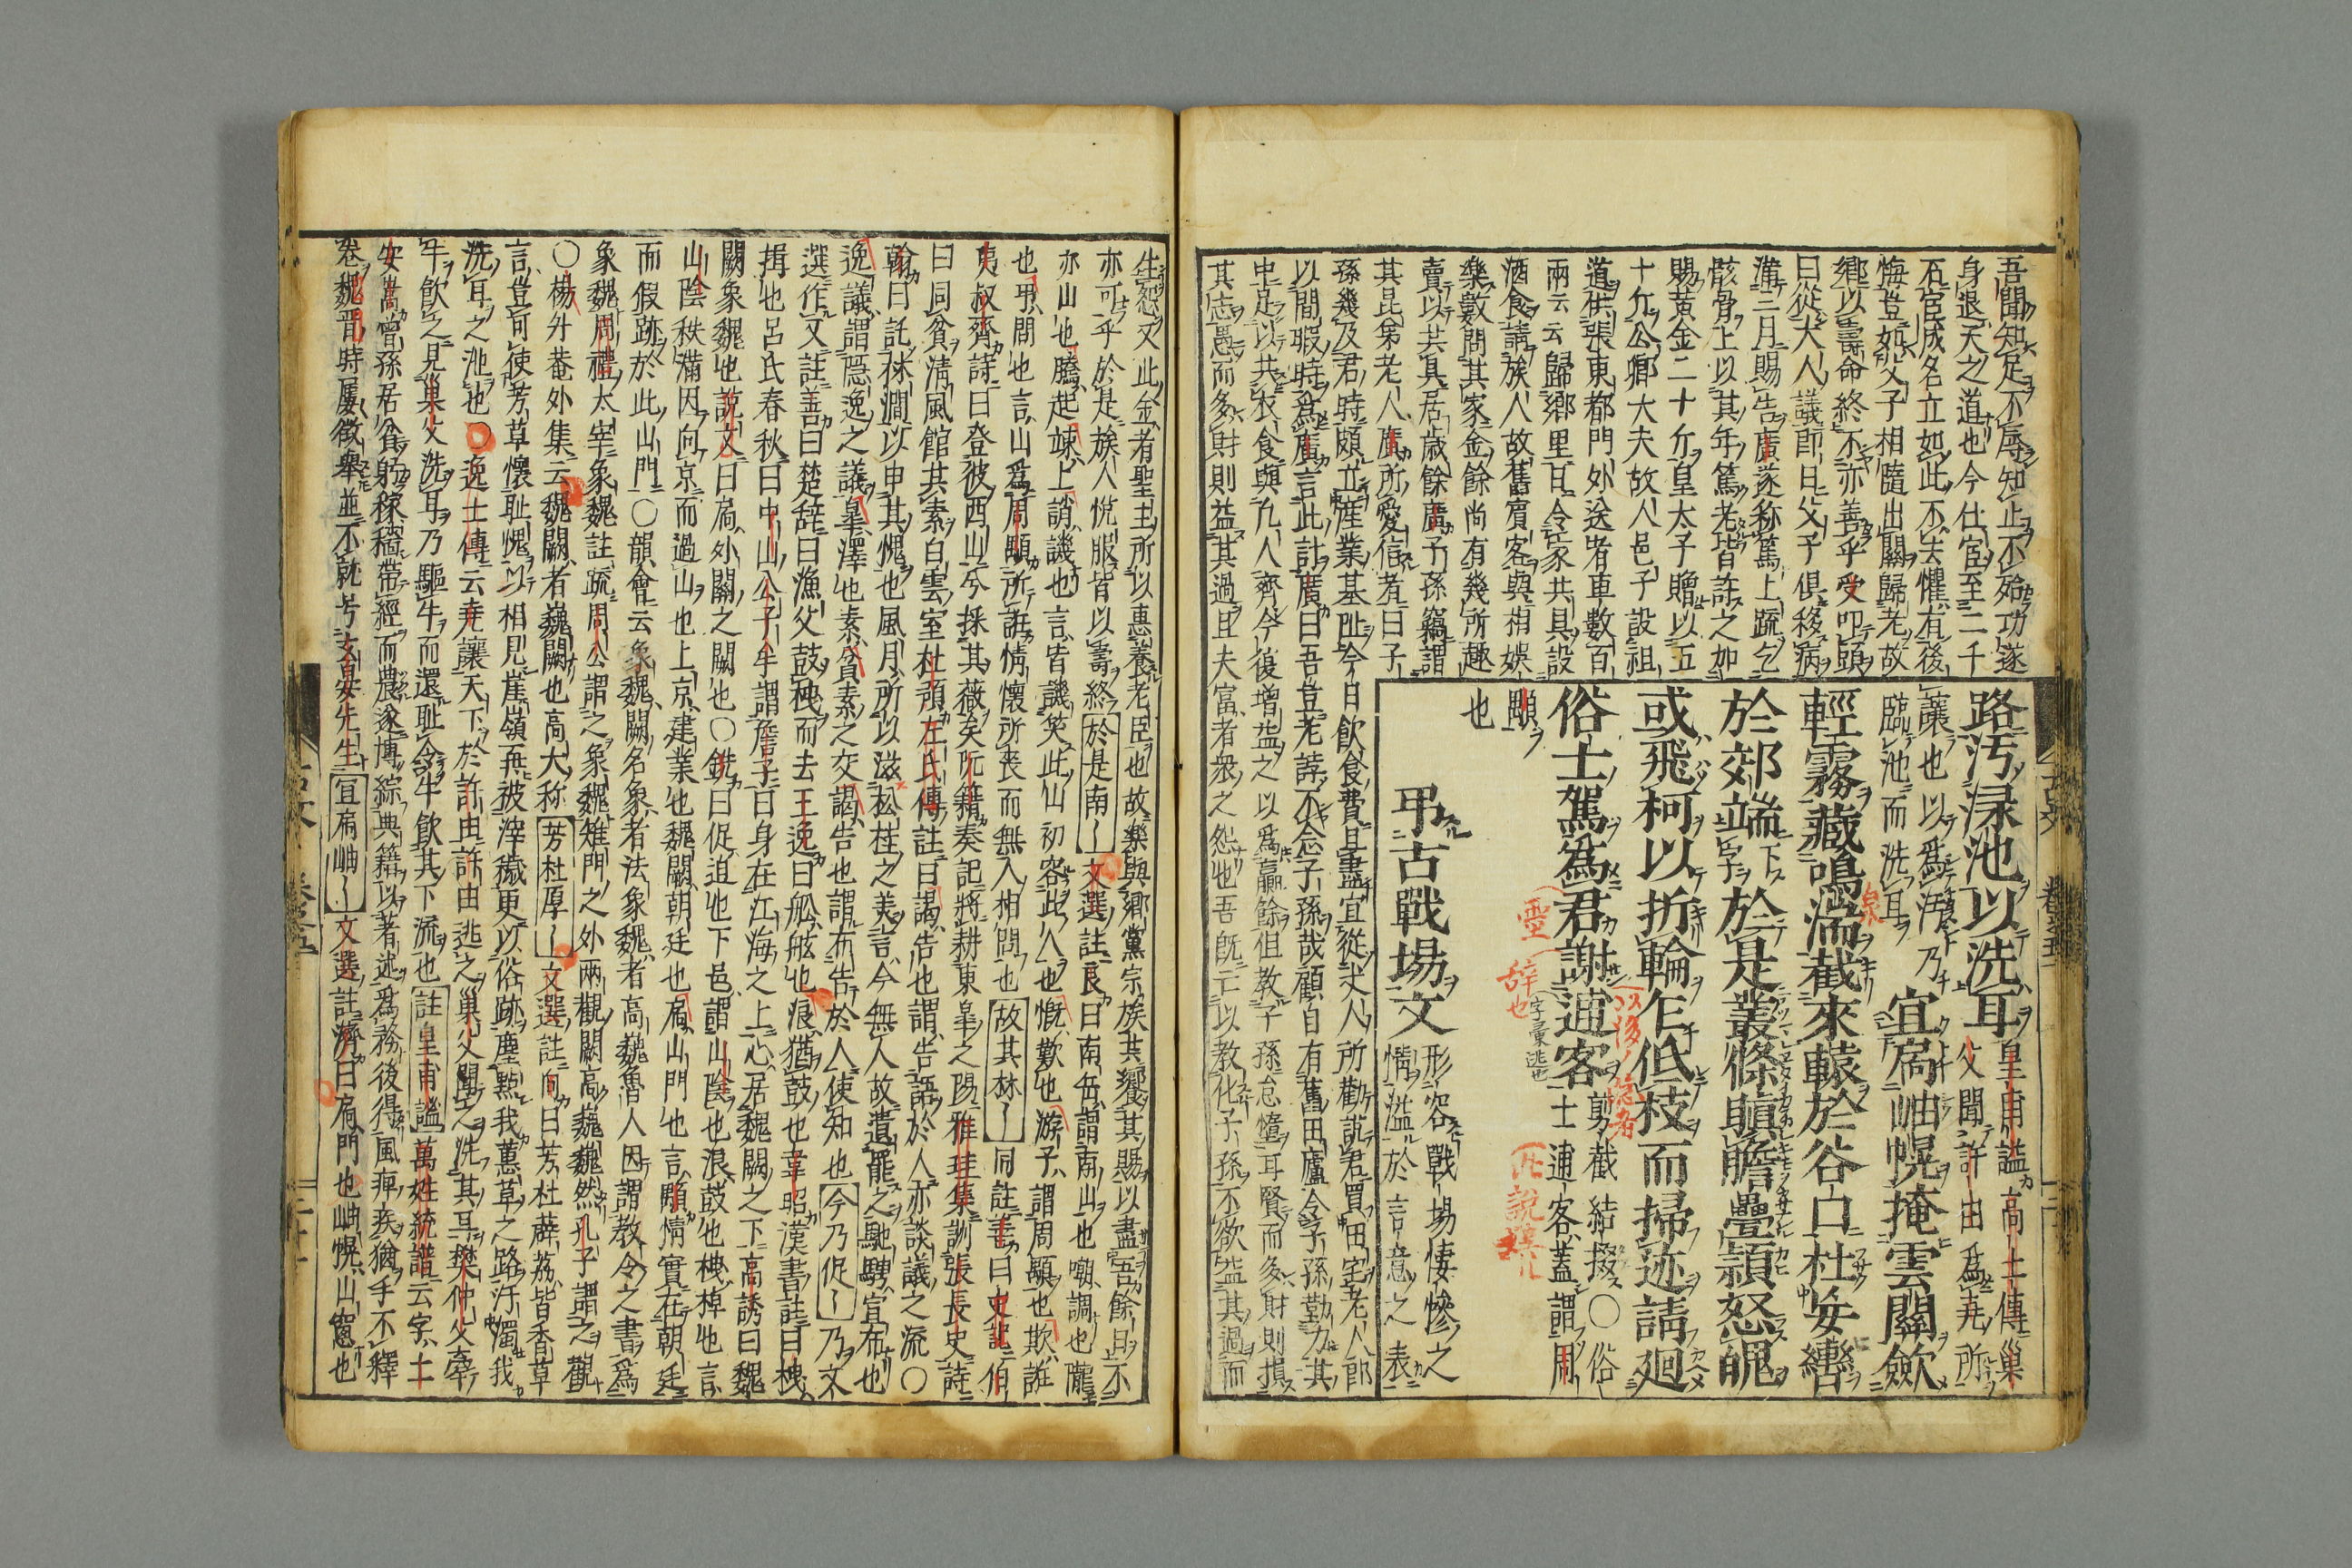 吾聞知足不辱知止不殆功遂
身退天之道也今仕宦至二千
石宦成名立如此不去懼有後
悔豈如父子相隨出關歸老故
鄉以壽命終不亦善乎受叩頭
曰從大人議即日父子俱移病
滿三月賜告廣遂称篤上疏乞
骸骨上以其年篤老皆許之加
賜黃金二十斤皇太子贈以五
十斤公卿大夫故人邑子設祖
道供張東都門外送者車數百
兩云云歸鄉里日令家共具設
酒食請族人故舊賓客與相娛
樂數問其家金餘尚有幾所趣
賣以共具居歲餘廣子孫竊謂
其昆弟老人廣所愛信者曰子
孫幾及君時頗立產業基阯今日飲食費且盡宜從丈人所勸說君買田宅老人即
以間暇時爲廣言此計廣曰吾豈老誖不念子孫哉顧自有舊田廬令子孫勤力其
中足以共衣食與凡人齊今復增益之以爲贏餘但教子孫怠憧耳賢而多財則損
其志愚而多財則益其過且夫富者衆之怨也吾既亡以教化子孫不欲益其過而
路汚渌池以洗耳
皇甫謐高士傳巢
父聞許由爲尭所
讓也以爲汚乃
臨池而洗耳
宜扃岫幌掩雲關歛
輕霧藏鳴湍截來轅於谷口杜妄轡
於郊端
於是叢條瞋膽疊穎怒魄
或飛柯以折輪乍低枝而掃迹請廻
俗士駕爲君謝逋客
剪截結掇○俗
士逋客蓋謂周
顒
也
弔古戰場文
形容戰場悽慘之
情溢於言意之表
泉
靈
辞也
字彙逃也
生怨又此金者聖主所以惠養老臣也故樂與鄉黨宗族共饗其賜以盡吾餘日不
亦可乎於是族人悅服皆以壽終於是南〡文選註良曰南岳謂南山也嘲調也隴
亦山也騰起竦上誚譏也言皆譏笑此山初容此人也慨歎也游子謂周顒也欺誑
也弔問也言山爲周顒所誑情懷所喪而無入相問也故其林〡同註善曰史記伯
夷叔齊詩曰登彼西山兮採其薇矣阮籍奏記將耕東皐之陽雅珪集訓張長史詩
曰同貧清風館共素白雲室杜預左氏傳註曰謁告也謂告語於人亦談議之流○
翰曰託林澗以申其愧也風月所以滋松桂之美言今無人故遣罷之馳騁宣布也
逸議謂隱逸之議皐澤也素貧素之交謁告也謂布告於人使知也今乃促〡乃文
選作又註善曰楚辞曰漁父鼓栧而去王逸曰舩舷也浪猶鼓也韋昭漢書註曰栧
揖也呂氏春秋曰中山公子牟謂詹子曰身在江海之上心居魏闕之下高誘曰魏
闕象魏也說文曰扃外關之關也○銑曰促迫也下邑謂山陰也浪鼓也栧棹也言
山陰秩滿因向京而過山也上京建業也魏闕朝廷也扃山門也言顒情實在朝廷
而假跡於此山門○韻會云象魏闕名象者法象魏者高巍魯人因謂教令之書爲
象魏周禮太宰象魏註疏周公謂之象魏雉門之外兩觀闕高巍巍然孔子謂之觀
○楊升菴外集云魏闕者巍闕也高大称芳杜厚〡文選註向曰芳杜薜荔皆香草
言豈可使芳草懷耻愧以相見崖嶺再被滓穢更以俗跡塵點我蕙草之路汙濁我
洗耳之池也○逸士傳云堯讓天下於許由許由逃之巢父聞之洗其耳樊仲父牽
牛飲之見巢父洗耳乃驅牛而還耻令牛飲其下流也註皇甫謐萬姓統譜云字士
安嵩曾孫居貧躬稼穡帶經而農遂博綜典籍以著述爲務後得風痺疾猶手不釋
卷魏晋時屢徵舉並不就号玄晏先生宜扃岫〡文選註濟曰扃門也岫幌山窻也